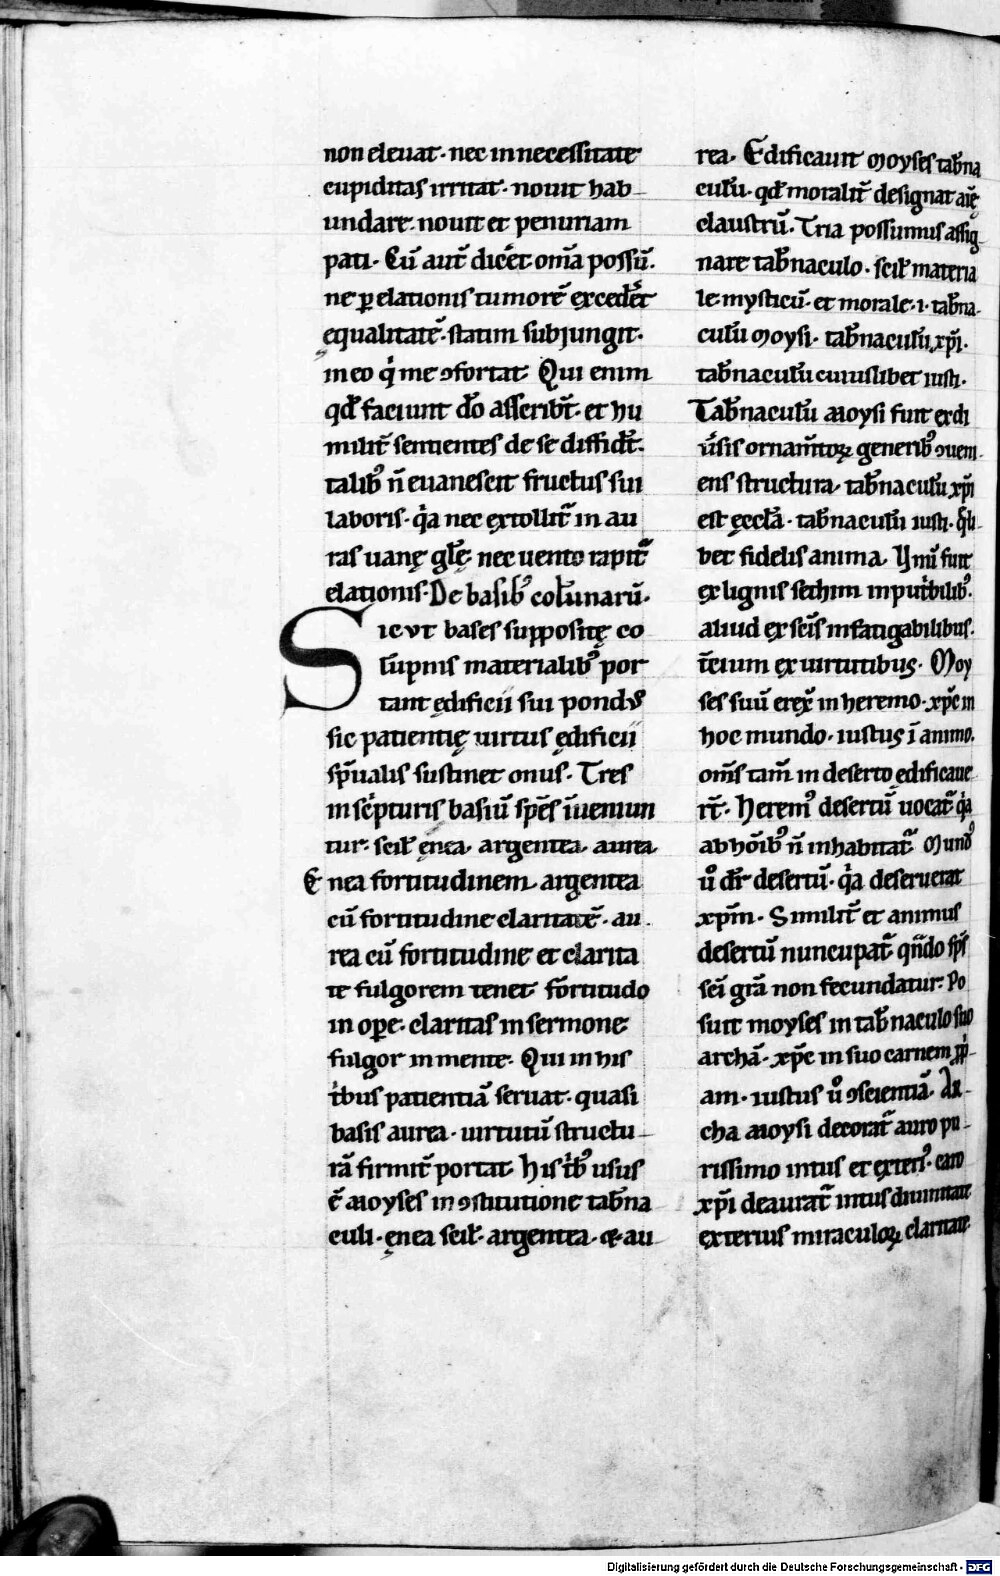 non eleuat· nec in necessitate
cupiditas irritat· nouit hab-
undare· nouit et penuriam
pati· Cū aut̄ dicēt om̄a possū·
ne p̲ elationis tumorē excederet
equalitatē· statim subjungit·
in eo q̇ me ꝯfortat· Qui enim
qd̄ faciunt dō asseribt̄· et hu
milit̄ sentientes de se diffidt̄·
talib᷒ n̄ euanescit fructus sui
laboris· q̇a nec extollit᷑ in au
ras uanę gl̄ę· nec uento rapit᷑
elationis· De basib᷒ colūnarū·
Sicvt bases suppositę co
lūpnis materialib᷒ por
tant ędificii sui pond᷒
sic patientię uirtus ędificii
sp̄ualis sustinet onus· Tres
in sc̄pturis basiū sp̄es īueniun
tur· scil̄· ęnea· argentea· aurea·
Enea fortitudinem argentea
cū fortitudine claritatē· au-
rea cū fortitudine et clarita
te fulgorem tenet· fortitudo
in op̲e· claritas in sermone·
fulgor in mente· Qui in his
ṫbus patientiā seruat· quasi
basis aurea· uirtutū structu-
rā firmit̄ portat· His ṫb᷒ usus
ē moyses in ꝯstitutione tab̄na
culi· ęnea scil̄· argentea· & au
rea· Edificauit moyses tab̄na
cul̄u· qd̄ moralit̄ designat aīę
claustrū· Tria possumus assig
nare tab̄naculo· scil̄ materia
le mysticū· et morale· i· tab̄na-
cul̄u moysi· tab̄nacul̄u xp̄i·
tab̄nacul̄u cuiuslibet iusti·
Tab̄nacul̄u moysi fuit ex di
ūsis ornam̄toꝝ generib᷒ ꝯueni-
ens structura· tab̄nacul̄u xp̄i
est ęccl̄a· tab̄nacul̄u iusti· q̄li
bet fidelis anima· Pimū fuit
ex lignis sethim inputribilib᷒·
aliud ex scīs infatigabilibus·
t̄cium ex uirtutibus· Moy
ses suū erex̄ in heremo· xp̄c in
hoc mundo· iustus ī animo·
om̄s tam̄ in deserto edificaue
rt̄· Herem᷒ desertū uocat᷑ q̇a
ab hōib᷒ n̄ inhabitat᷑ Mund᷒
ů dr̄ desertū· q̇a deseruerat
xp̄m· Similit̄ et animus
desertū nuncupat᷑ qn̄do sp̄s
scī grā non fecundatur· Po
suit moyses in tab̄naculo suo
archā· xp̄c in suo carnem pp̄i-
am· iustus ů ꝯscientiā· Ar-
cha moysi decorat᷑ auro pu-
rissimo intus et exteri᷒· caro
xp̄i deaurat᷑ intus diuinitate
exterius miraculoꝝ claritate·
Digitalisierung gefördert durch die Deutsche Forschungsgemeinschaft - DFG